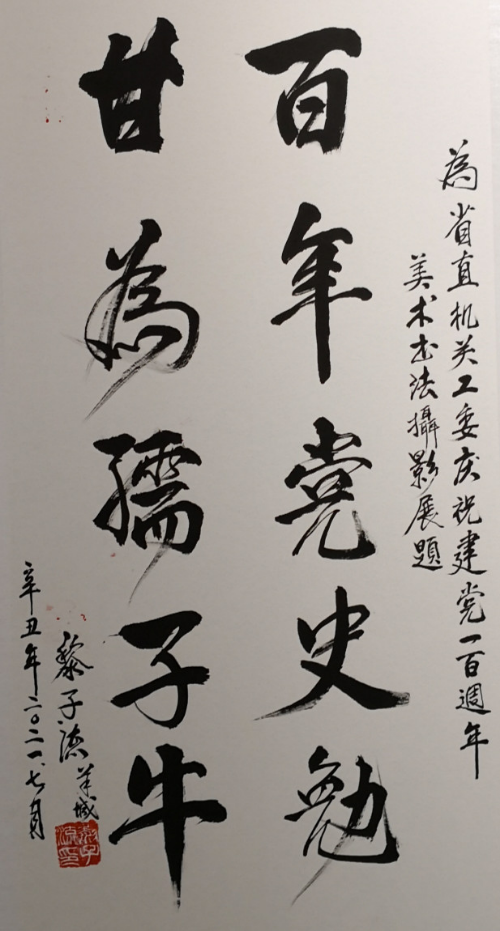 為省直机关工委庆祝建党一百週年
美术书法攝影展题
百年党史勉
甘為孺子牛
黎子流羊城
辛丑年二〇二一、七月